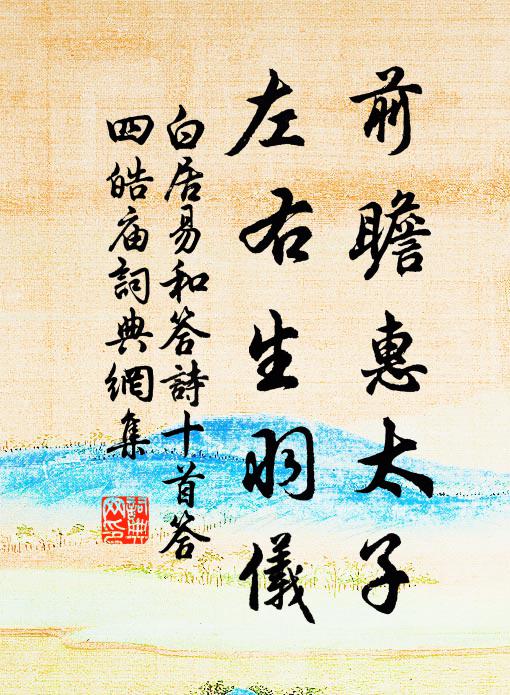 前瞻惠太子
左右生羽儀
白居易和答詩十首答
四皓庙詞典網集